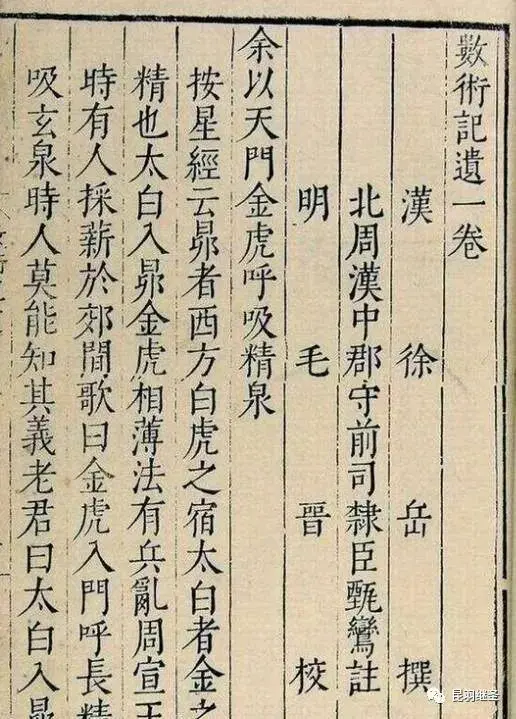 數術記遺一卷
漢 徐 岳 撰
北周漢中郡守前司隸臣甄鸞註
明 毛 晉 校
余以天門金虎呼吸精泉
按星經云昴者西方白虎之宿太白者金之
精也太白入昴金虎相薄法有兵亂周宣王
時有人採薪於郊間歌曰金虎入門呼長精
吸玄泉時人莫能知其義老君曰太白入昴
昆羽继圣